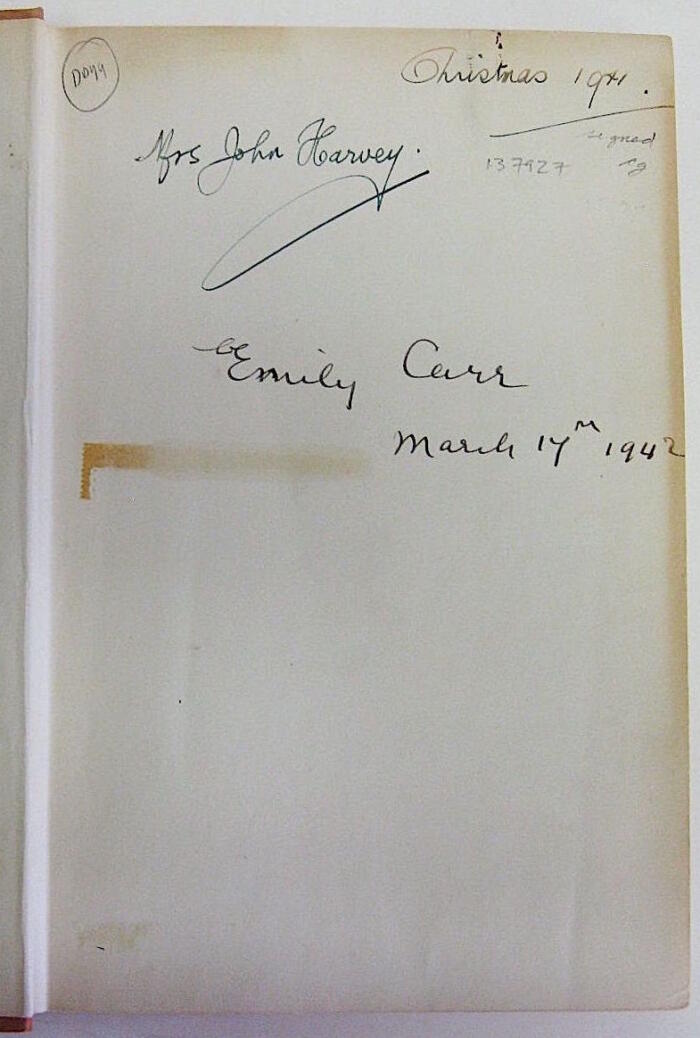 Christmas 1941.
Mrs John Harvey.
signed
137927
Emily Carr
March 17th 1942